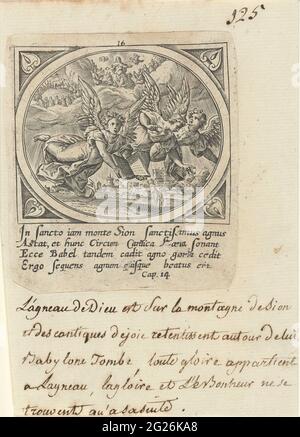 125
16
In sancto iam monte Sion sanctissimus agnus
Astat, et hunc Circum Cantica laeta sonant
Ecce Babel tandem cadit agno gloria cedit
Ergo sequens agnum quisque beatus erit
Cap. 14
L'agneau de Dieu est Sur la montagne de Sion
et des cantiques de joie retentissent autour de lui
Babylone Tombe toute gloire appartient
a Layneau, la gloire et Le Bonheur ne se
trouvent qu'a sa suite.
alamy
Image ID: 2G26KA8
www.alamy.com